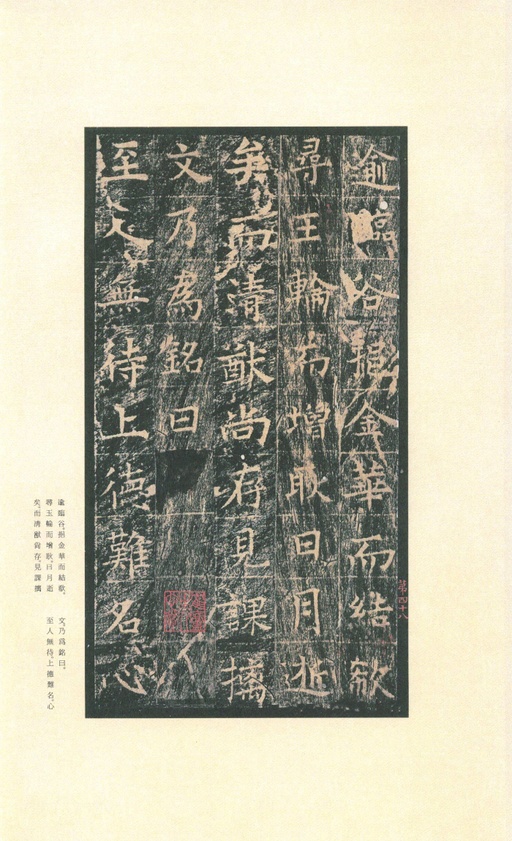 逾臨谷挹金華而結欷
尋王輪而增耿日月逝
矣而清猷尚存見課摛
文乃為銘曰
至人無待上德難名心
第四十八
逾臨谷挹金華而結欷
尋玉輪而增耿日月逝
矣而清猷尚存見課摛
文乃為銘曰
至人無待上德難名心